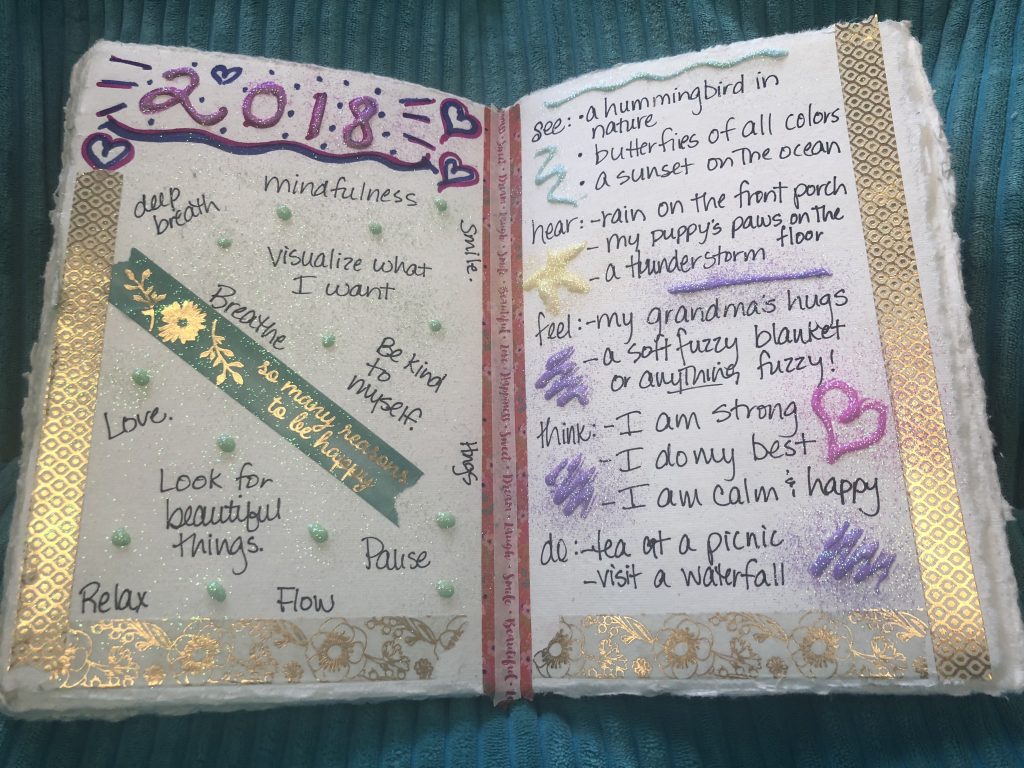 2018
deep
breath
mindfulness
Smile.
Visualize what
I want
Breathe
Be kind
to
myself.
so many reasons
to be happy
Love.
Hugs
Look for
beautiful
things.
Pause
Relax
Flow
Dream · Laugh · Smile · Beautiful · Love · Happiness · Sweet · Dream · Laugh · Smile · Beautiful ·
see: · a hummingbird in
nature
· butterfies of all colors
· a sunset on the ocean
hear: - rain on the front porch
- my puppy's paws on the
floor
- a thunderstorm
feel: - my grandma's hugs
- a soft fuzzy blanket
or anything fuzzy!
think: - I am strong
- I do my best
- I am calm & happy
do: - tea at a picnic
- visit a waterfall